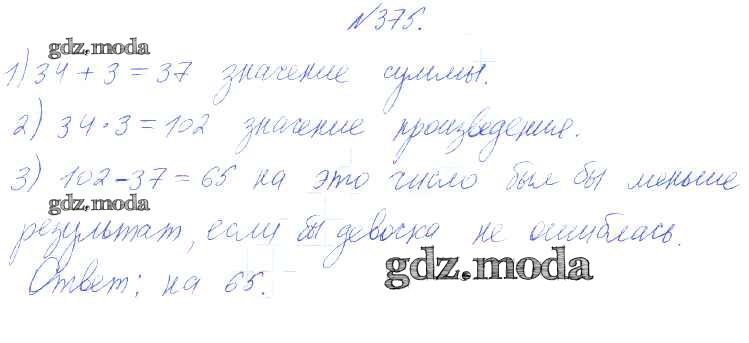 №375.
gdz.moda
1) 34 + 3 = 37 значение суммы.
2) 34 · 3 = 102 значение произведения.
3) 102 - 37 = 65 на это число был бы меньше
gdz.moda
результат, если бы девочка не ошиблась.
gdz.moda
Ответ: на 65.